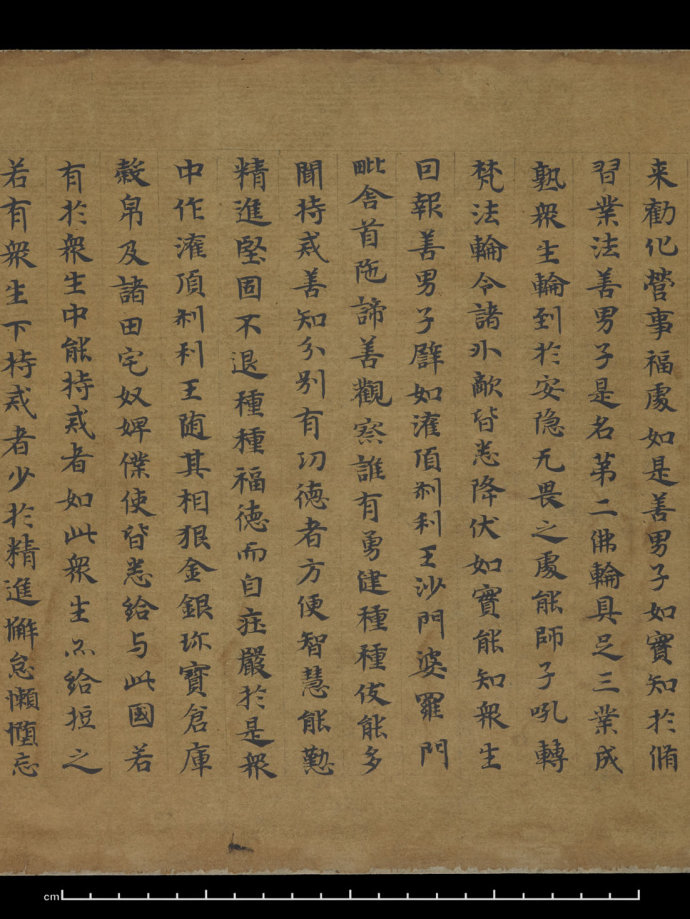 来勸化營事福處如是善男子如實知於脩
習業法善男子是名苐二佛輪具足三業成
熟衆生輪到於安隐无畏之處能師子吼轉
梵法輪令諸外敵皆悉降伏如實能知衆生
回報善男子辟如灌頂刹利王沙門婆羅門
毗舍首陁諦善觀察誰有勇健種種伎能多
聞持戒善知分別有功德者方便智慧能勤
精進堅固不退種種福德而自莊嚴於是衆
中作灌頂刹利王随其相狠金銀珎寶倉庫
穀帛及諸田宅奴婢僕使皆悉給与此國若
有於衆生中能持戒者如此衆生亦給恒之
若有衆生下持戒者少於精進懈怠懶憜忘